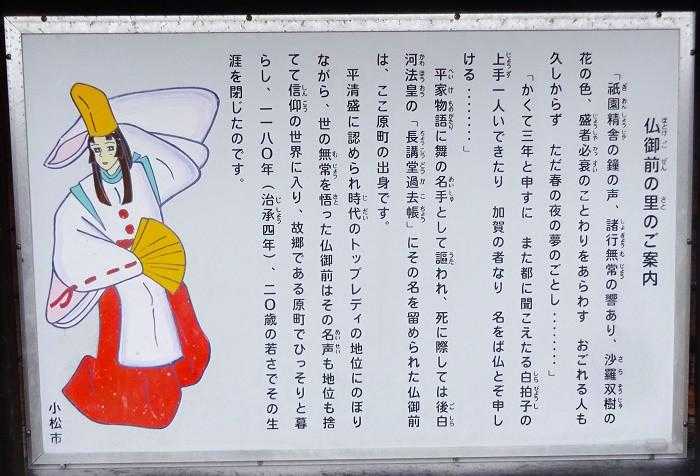 仏御前の里のご案内
「祇園精舎の鐘の声、諸行無常の響あり、沙羅双樹の
花の色、盛者必衰のことわりをあらわす　おごれる人も
久しからず　ただ春の夜の夢のごとし‥‥‥‥」
「かくて三年と申すに　また都に聞こえたる白拍子の
上手一人いできたり　加賀の者なり　名をば仏とぞ申し
ける‥‥‥‥」
平家物語に舞の名手として謳われ、死に際しては後白
河法皇の「長講堂過去帳」にその名を留められた仏御前
は、ここ原町の出身です。
平清盛に認められ時代のトップレディの地位にのぼり
ながら、世の無常を悟った仏御前はその名声も地位も捨
てて信仰の世界に入り、故郷である原町でひっそりと暮
らし、一一八〇年（治承四年）、二〇歳の若さでその生
涯を閉じたのです。
小松市